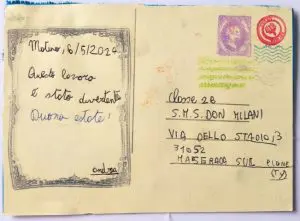 Matino, 6/5/2024
Questo lavoro
è stato divertente
Buona estate!
Classe 2B
S.M.S. DON MILANI
VIA DELLO STADIO, 3
31052
MASERADA SUL PIAVE
(TV)